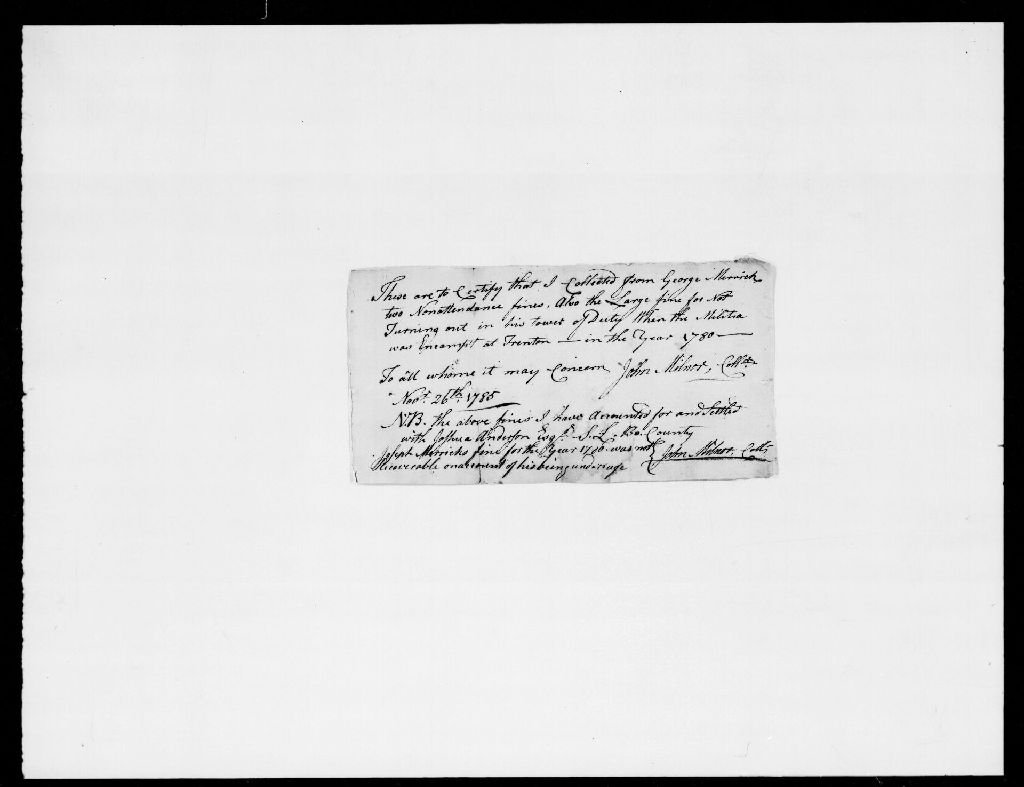 These are to Certify that I Collected from George Merrick
two Nonattendance fines, Also the Large fine for Not
Turning out in his tower of Duty When the Militia
was Encampt at Trenton — in the Year 1780 —
To all whome it may Concern John Milnor, Collr
Novr. 26th. 1785
NB. the above fines I have Accounted for and Settled
with Joshua Anderson Esqr. S. L. Bs. County
Joseph Merricks fine for the Year 1780 was not
Recoverable on account of his being under age
John Milnor, Collr